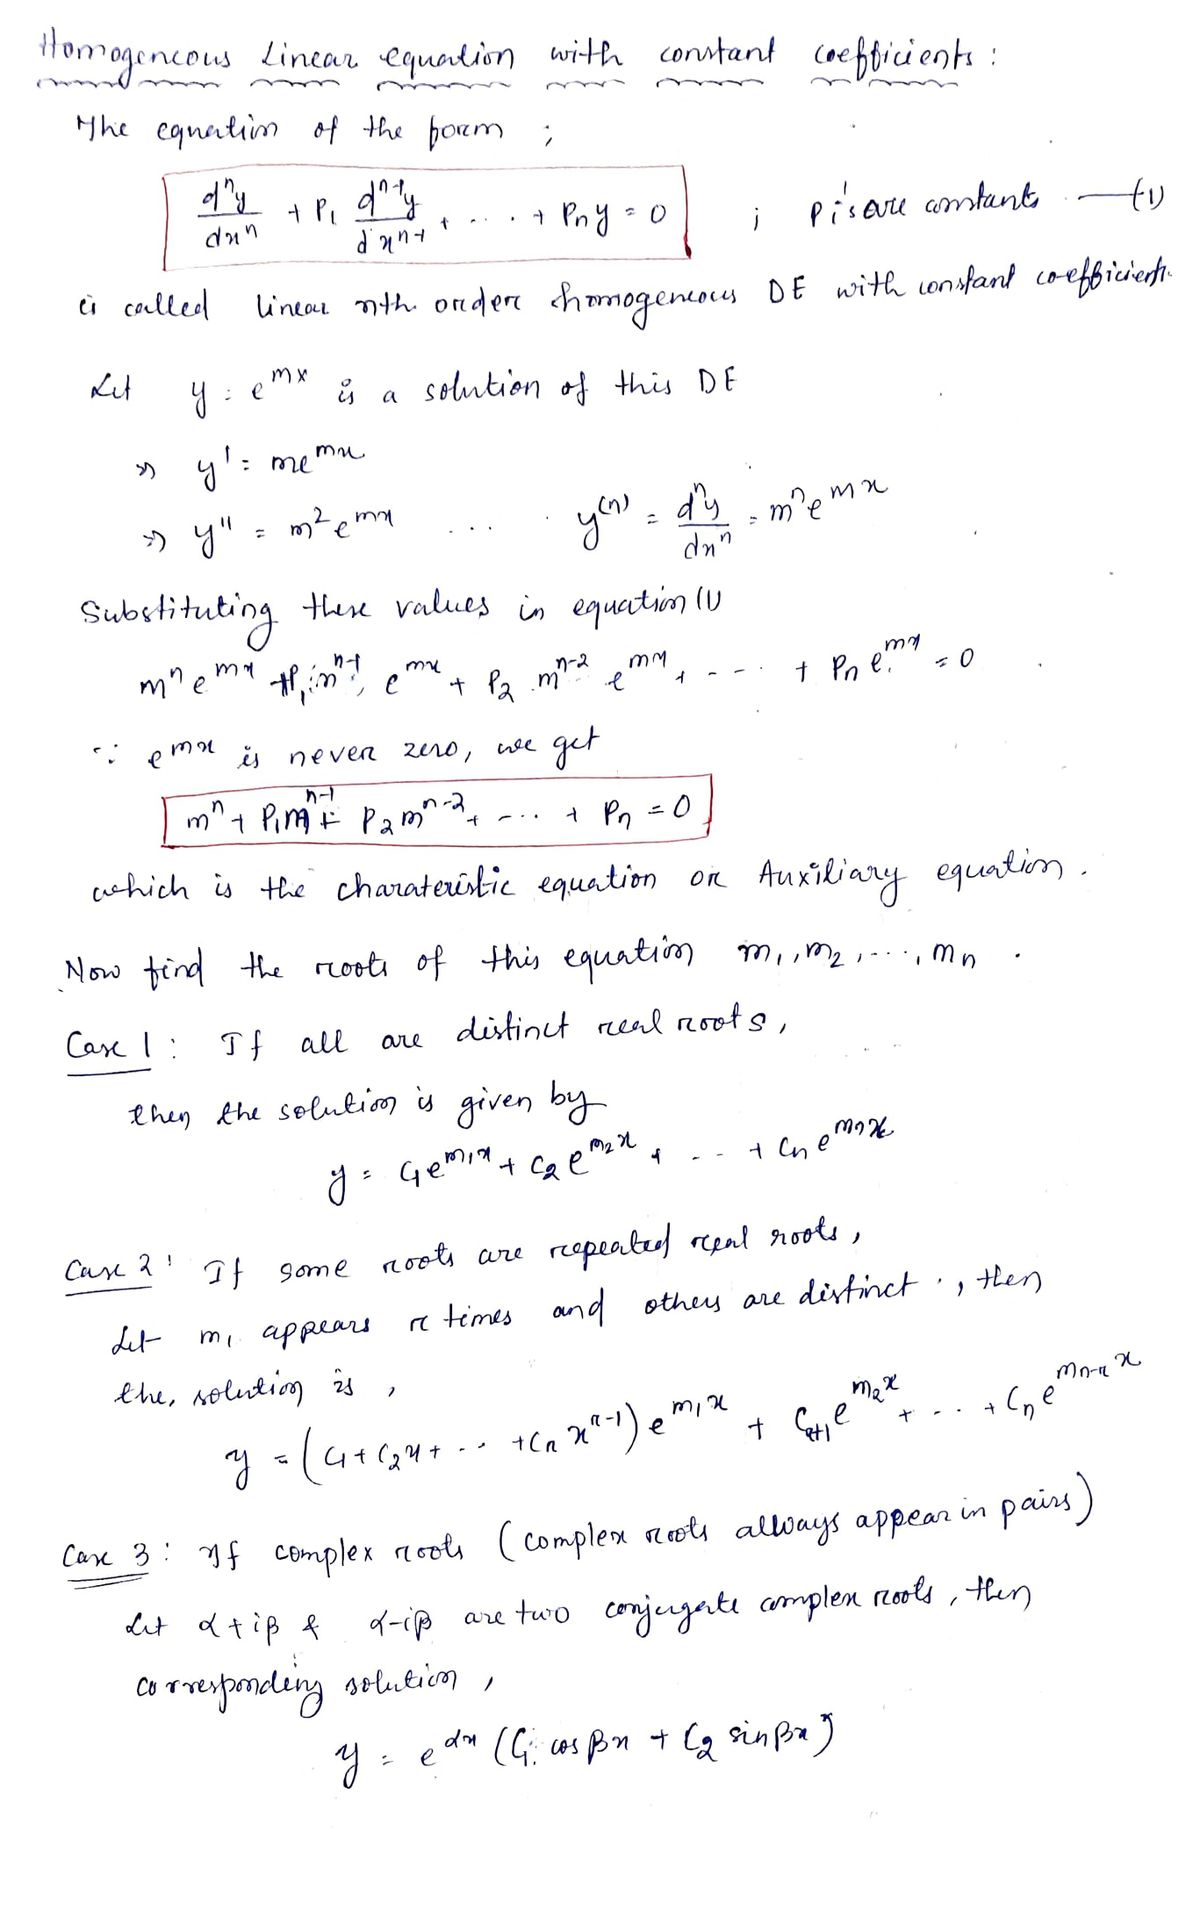 Homogeneous Linear equation with constant coefficients :
The equation of the form ;
d^n y/dx^n + P₁ d^(n-1)y/dx^(n-1) + .... + Pₙ y = 0 ; Pi's are constants —(1)
is called linear nth order homogeneous DE with constant co-efficients.
Let y = e^(mx) is a solution of this DE
⇒ y' = me^(mx)
⇒ y'' = m² e^(mx) ... y^(n) = d^n y/dx^n = m^n e^(mx)
Substituting these values in equation (1)
m^n e^(mx) + P₁ m^(n-1) e^(mx) + P₂ m^(n-2) e^(mx) + - - . + Pₙ e^(mx) = 0
∵ e^(mx) is never zero, we get
m^n + P₁ m^(n-1) + P₂ m^(n-2) + - ... + Pₙ = 0
which is the charateristic equation or Auxiliary equation.
Now find the roots of this equation m₁, m₂, ..., mₙ .
Case 1 : If all are distinct real roots,
then the solution is given by
y = C₁e^(m₁x) + C₂e^(m₂x) + - - . + Cₙe^(mₙx)
Case 2 : If some roots are repeated real roots,
Let m₁ appears r times and others are distinct , then
the, solution is ,
y = (C₁ + C₂x + - .. + Cᵣ x^(r-1)) e^(m₁x) + Cᵣ₊₁ e^(m₂x) + - .. + Cₙ e^(mₙ₋ᵣ x)
Case 3 : If complex roots (complex roots allways appear in pairs)
Let α+iβ & α-iβ are two conjugate complex roots, then
corresponding solution ,
y = e^(αx) (C₁ cos βx + C₂ sin βx)